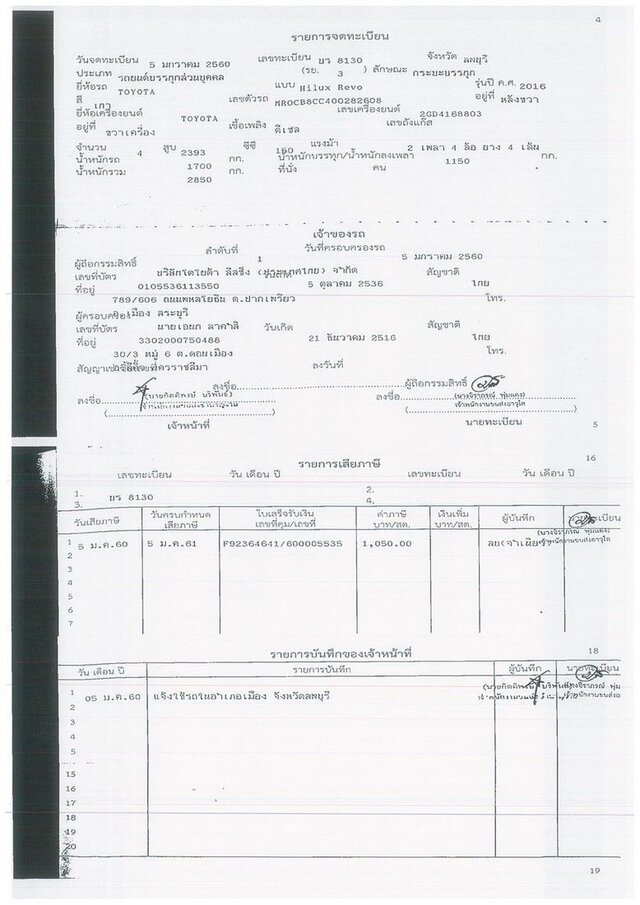 4
รายการจดทะเบียน
วันจดทะเบียน 5 มกราคม 2560 เลขทะเบียน บร 8130 จังหวัด ลพบุรี
ประเภท รถยนต์บรรทุกส่วนบุคคล (รย. 3 ) ลักษณะ กระบะบรรทุก
ยี่ห้อรถ TOYOTA แบบ Hilux Revo รุ่นปี ค.ศ. 2016
สี เทา เลขตัวรถ MR0CB8CC400282608 อยู่ที่ หลังขวา
ยี่ห้อเครื่องยนต์ TOYOTA เลขเครื่องยนต์ 2GD4168803
อยู่ที่ ขวาเครื่อง เชื้อเพลิง ดีเซล เลขถังแก๊ส
จำนวน 4 สูบ 2393 ซีซี 150 แรงม้า 2 เพลา 4 ล้อ ยาง 4 เส้น
น้ำหนักรถ 1700 กก. น้ำหนักบรรทุก/น้ำหนักลงเพลา 1150 กก.
น้ำหนักรวม 2850 กก. ที่นั่ง คน
เจ้าของรถ
ลำดับที่ 1 วันที่ครอบครองรถ 5 มกราคม 2560
ผู้ถือกรรมสิทธิ์ บริษัทโตโยต้า ลีสซิ่ง (ประเทศไทย) จำกัด
เลขที่บัตร 0105536113550 5 ตุลาคม 2536 สัญชาติ ไทย
ที่อยู่ 789/606 ถนนพหลโยธิน ต.ปากเพรียว โทร.
เมือง สระบุรี
ผู้ครอบครอง นายเอนก
เลขที่บัตร 3302000750488 วันเกิด 21 ธันวาคม 2516 สัญชาติ ไทย
ที่อยู่ 30/3 หมู่ 6 ต.ดอนเมือง โทร.
สัญญาเช่าซื้อ ลงวันที่
ลงชื่อ ผู้ถือกรรมสิทธิ์
ลงชื่อ ลงชื่อ
(นายกิตติพงษ์ บริพันธ์) (นางจิราภรณ์ พุ่มแตง)
เจ้าหน้าที่ นายทะเบียน
5
รายการเสียภาษี 16
เลขทะเบียน วัน เดือน ปี เลขทะเบียน วัน เดือน ปี
1. บร 8130 2.
3. 4.
วันเสียภาษี วันครบกำหนดเสียภาษี ใบเสร็จรับเงิน เลขที่คุม/เลขที่ ค่าภาษี บาท/สต. เงินเพิ่ม บาท/สต. ผู้บันทึก นายทะเบียน
(นางจิราภรณ์ พุ่มแตง)
1 5 ม.ค.60 5 ม.ค.61 F92364641/600005535 1,050.00
2
3
4
5
6
7
รายการบันทึกของเจ้าหน้าที่ 18
วัน เดือน ปี รายการบันทึก ผู้บันทึก นายทะเบียน
1 05 ม.ค.60 แจ้งใช้รถในอำเภอเมือง จังหวัดลพบุรี
2
3
4
5
15
16
17
18
19
20
19